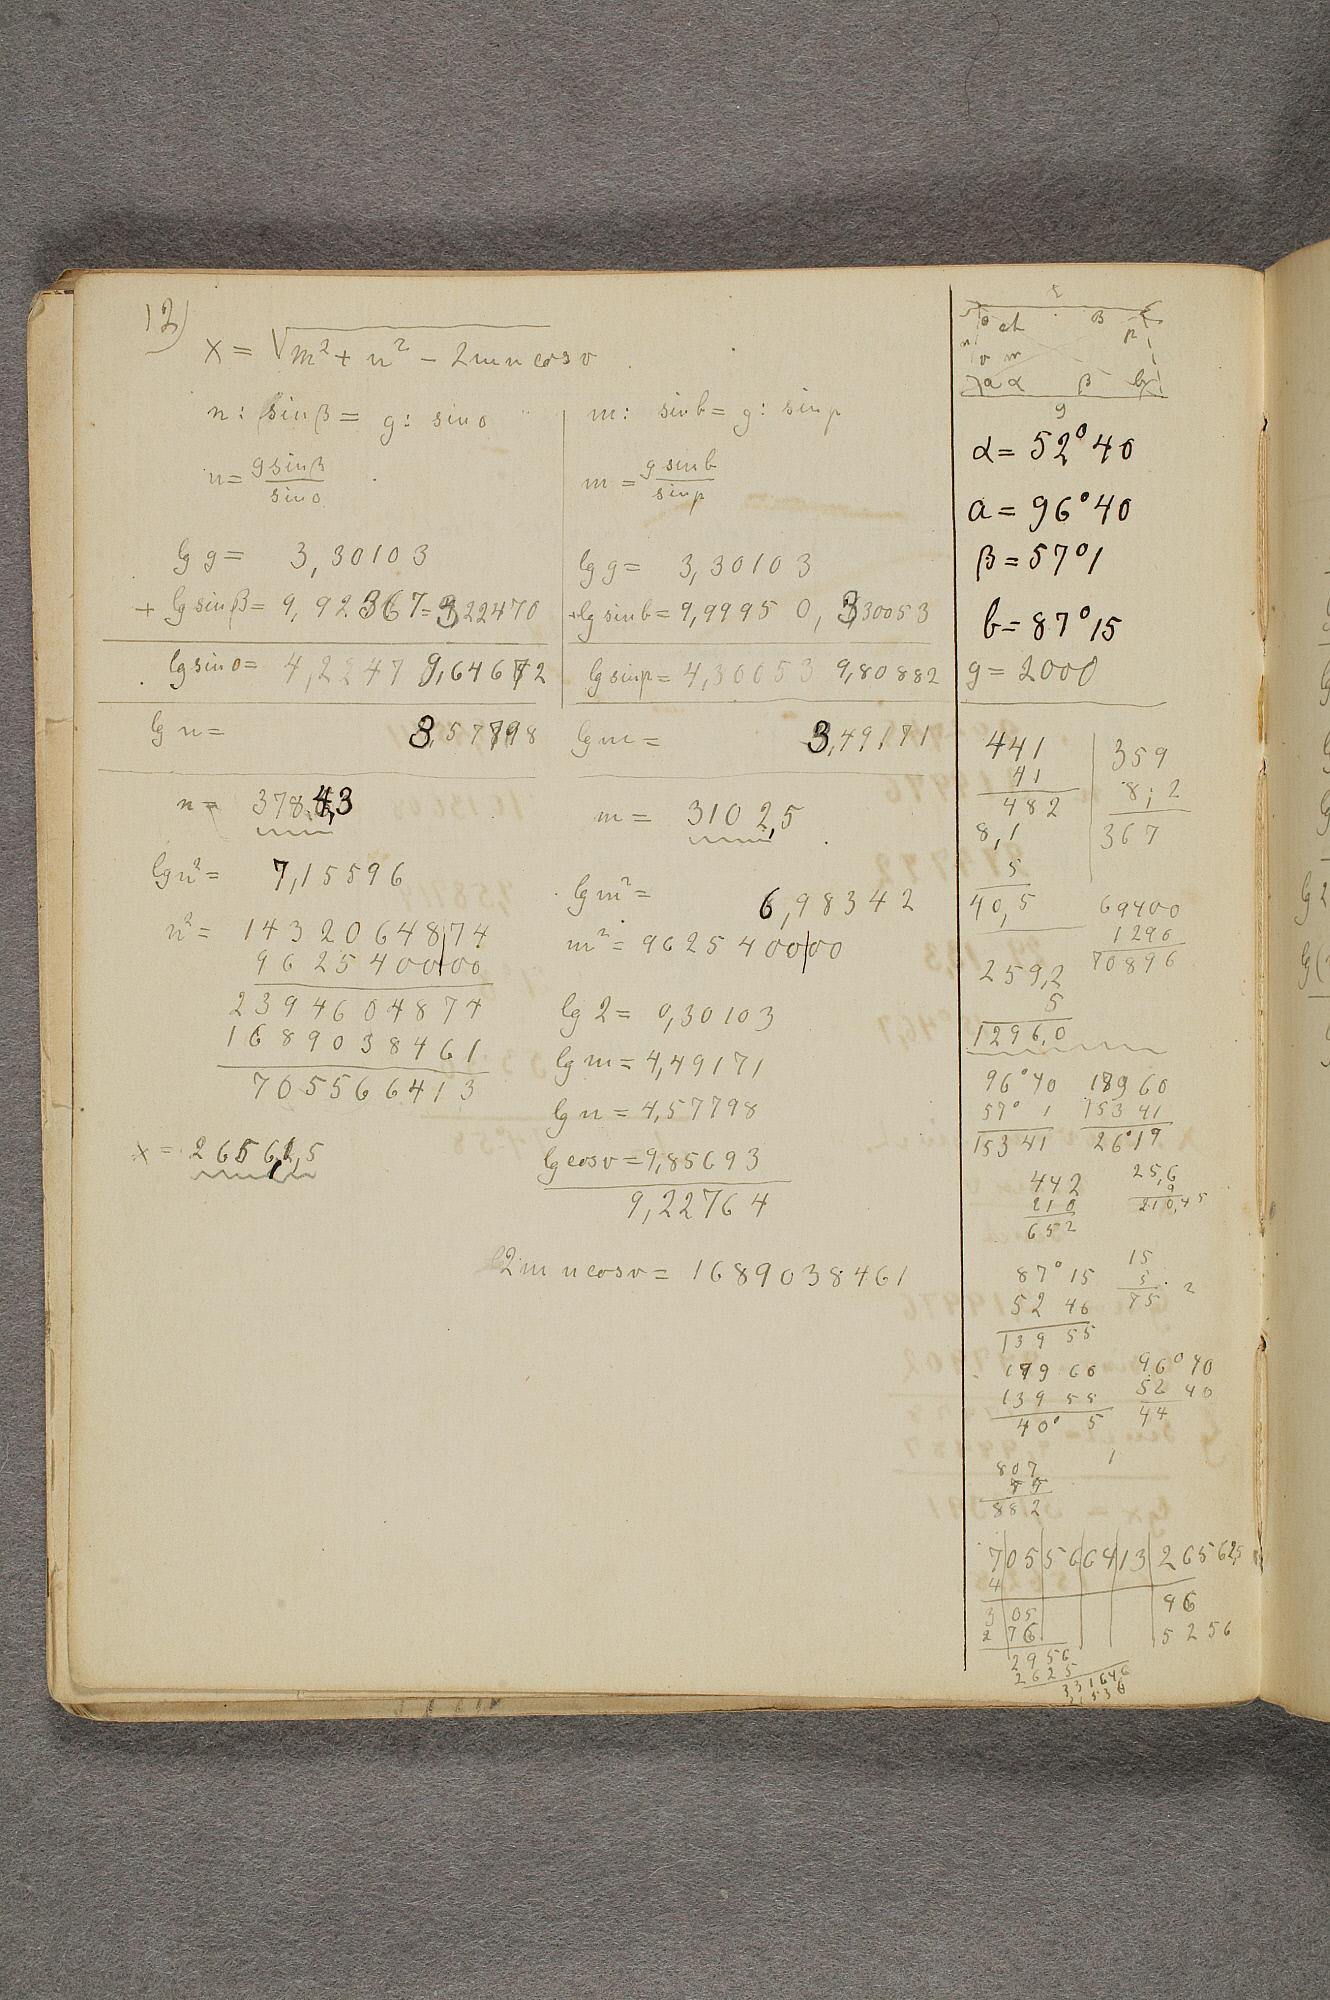 12)
x = √m² + n² - 2mn cos v
n : sin β = g : sin o
n = g sin β / sin o
lg g = 3,30103
+ lg sin β = 9,92367 = 3,22470
lg sin o = 4,2247 9,64672
lg n = 3,57798
n = 378 4,3
lg n² = 7,15596
n² = 14320648|74
96254000|00
2394604874
1689038461
705566413
x = 26561,5
m : sin b = g : sin p
m = g sin b / sin p
lg g = 3,30103
+ lg sin b = 9,99950, 3,30053
lg sin p = 4,30053 9,80882
lg m = 3,49171
m = 3102,5
lg m² = 6,98342
m² = 96254000|00
lg 2 = 0,30103
lg m = 4,49171
lg n = 4,57798
lg cos v = 9,85693
9,22764
2mn cos v = 1689038461
g
α = 52°40
a = 96°40
β = 57°1
b = 87°15
g = 2000
441
41
482
8,1
5
40,5
2592
5
1296,0
359
8,2
367
69400
1296
70896
96°40
57° 1
153 41
179 60
153 41
26°19
442
210
652
25,6
9
210,45
87°15
52 46
139 55
15
5
75
2
179 60
139 55
40° 5
96°40
52 40
44
1
807
75
882
7|05|56|64|13| 2656 2,5
4
3 05
2 76
46
5256
2956
2625
331646